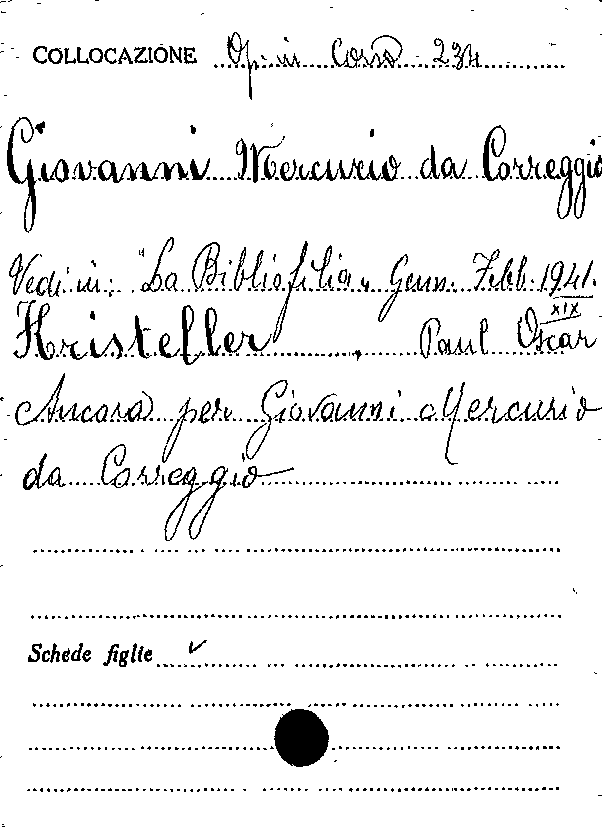 COLLOCAZIONE Op. in Corso 234
Giovanni Mercurio da Correggio
Vedi in: "La Bibliofilia" Genn. Febb. 1941.
XIX
Kristeller, Paul Oscar
Ancora per Giovanni Mercurio
da Correggio
Schede figlie ✓